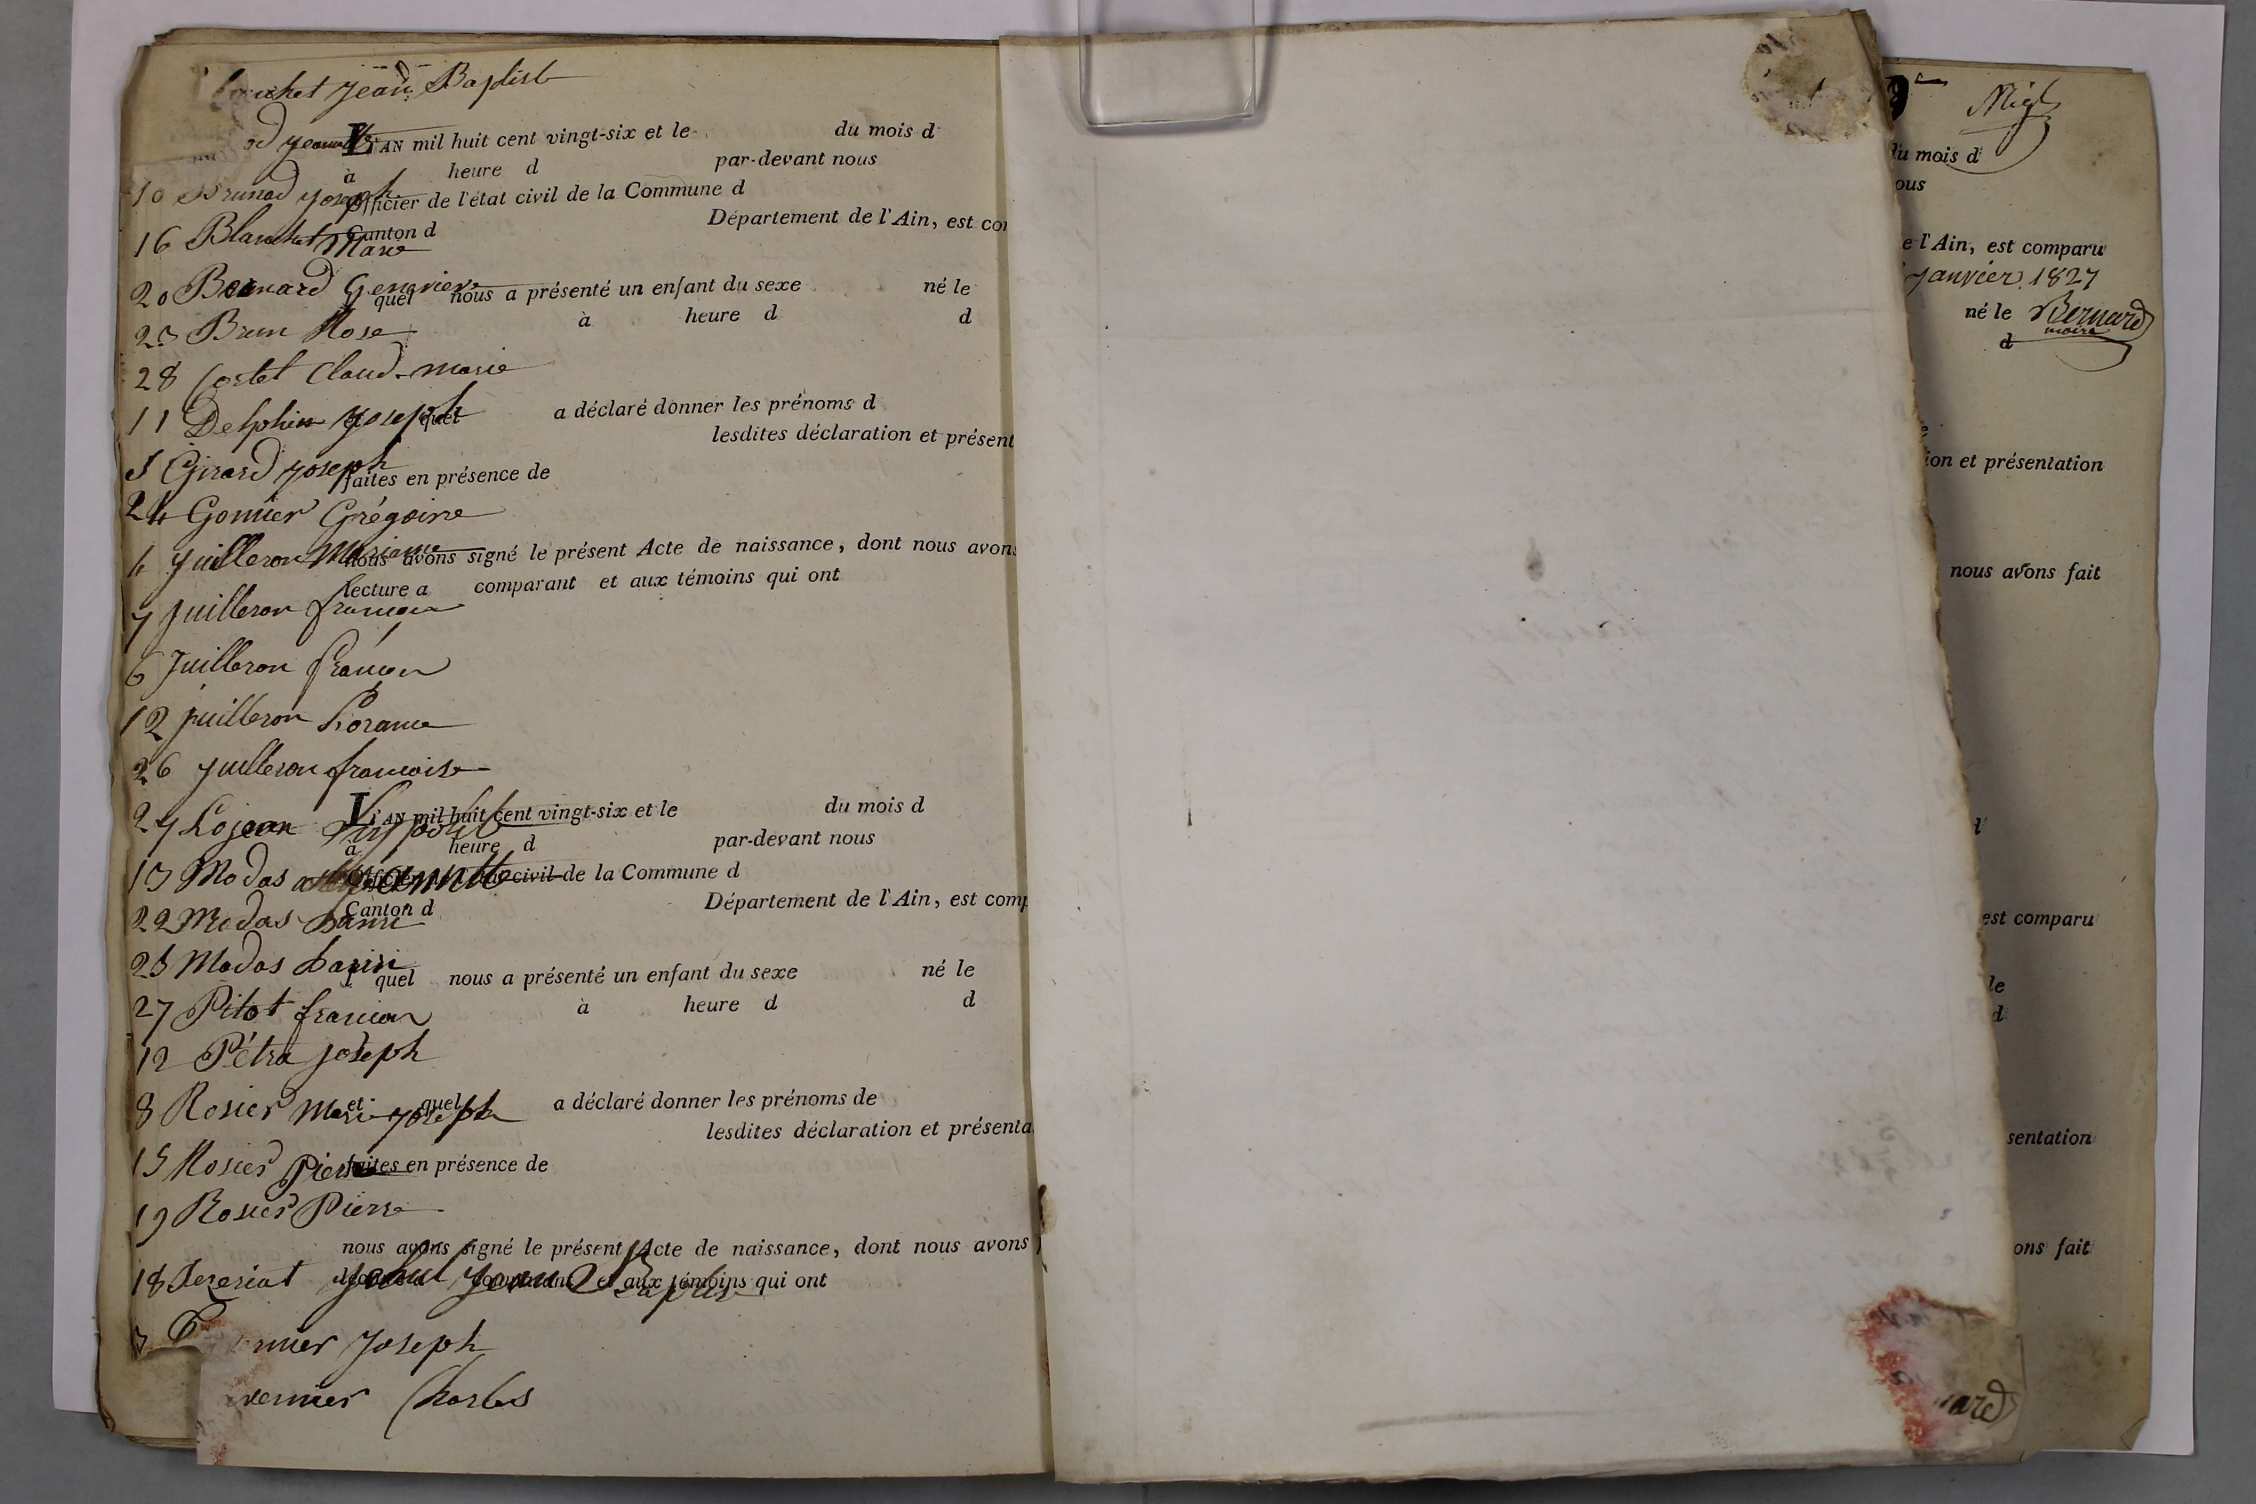 Jean Baptist
L'AN mil huit cent vingt-six et le du mois d
à heure d par-devant nous
10 Brunad Joseph
Officier de l'état civil de la Commune d
16 Blanchet Marie
Canton d Département de l'Ain, est
20 Bernard Genevieve
quel nous a présenté un enfant du sexe né le
23 Brun Rose
à heure d d
28 Cortet Claud-marie
11 Delphin Joseph
et quel a déclaré donner les prénoms d
lesdites déclaration et présent
5 Girard Joseph
faites en présence de
24 Gonnier Grégoire
4 Juilleron Marianne
nous avons signé le présent Acte de naissance, dont nous avons
lecture a comparant et aux témoins qui ont
7 Juilleron
6 Juilleron
12 juilleron
26 Juilleron francoise
L'AN mil huit cent vingt-six et le du mois d
à heure d par-devant nous
13 Modas
Officier de l'état civil de la Commune d
22 Modas
Canton d Département de l'Ain, est comp
25 Modas
quel nous a présenté un enfant du sexe né le
27 Pitot
à heure d d
12 Pétra joseph
8 Rosier Marie joseph
et quel a déclaré donner les prénoms de
lesdites déclaration et présenta
15 Rosier Pierre
faites en présence de
19 Rosier Pierre
nous avons signé le présent Acte de naissance, dont nous avons
18 Jean Baptiste
lecture a comparant et aux témoins qui ont
Joseph
Charles
du mois d
ous
e l'Ain, est comparu
Janvier 1827
né le Bernard
maire
d
ion et présentation
nous avons fait
est comparu
le
d
sentation
ons fait
ard